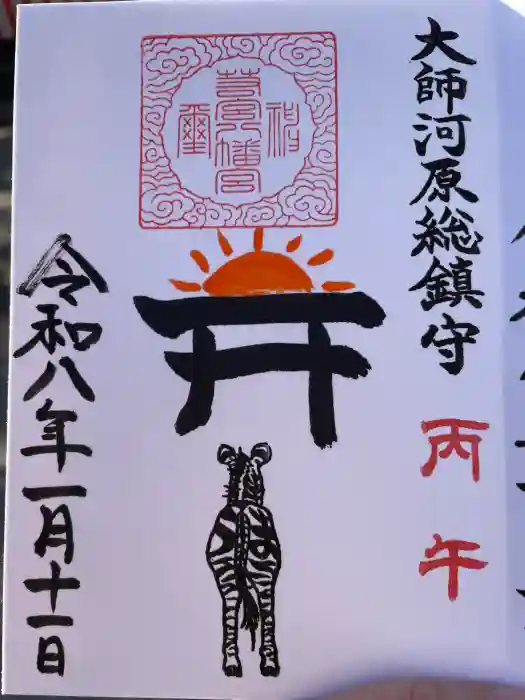 大師河原総鎮守
丙午
若宮八幡宮
神璽
令和八年一月十一日